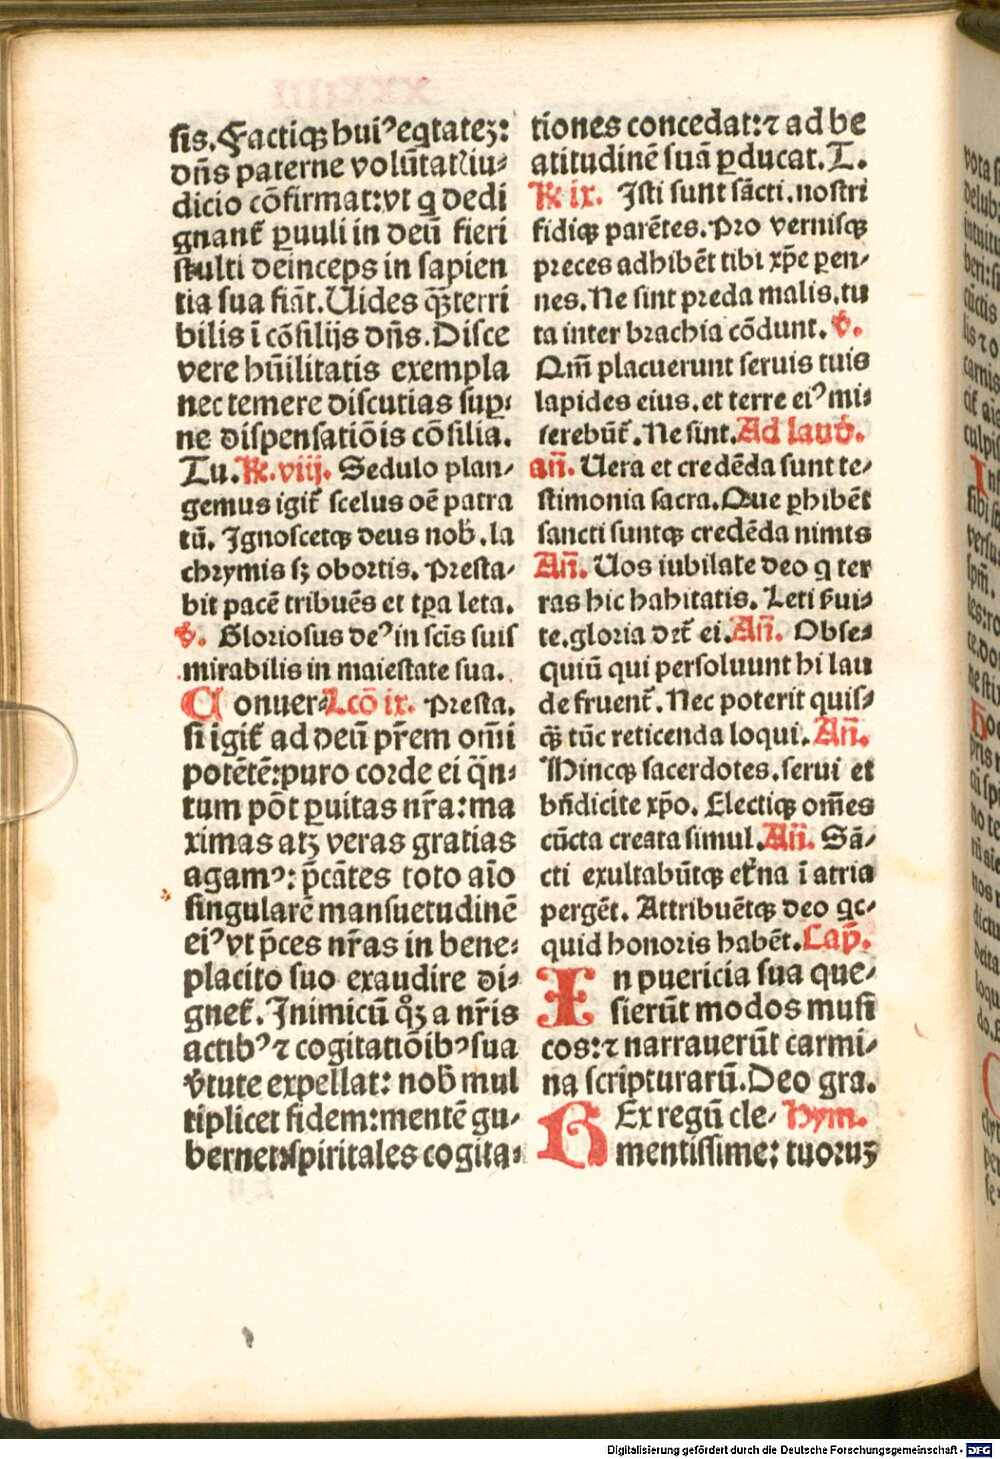 sis. Factiqꝫ huiꝰ eqtatez:
dn̄s paterne volūtat᷑ iu⸗
dicio cōfirmat: vt q dedi
gnant᷑ ꝑuuli in deū fieri
stulti deinceps in sapien
tia sua fiāt. Uides qꝫ̄ terri
bilis ī cōsilijs dn̄s. Disce
vere hūilitatis exempla
nec temere discutias suꝑ⸗
ne dispensatiōis cōsilia.
Tu. ℞. viij. Sedulo plan⸗
gemus igit᷑ scelus oē patra
tū. Ignoscetqꝫ deus nob̄. la
chrymis sꝫ obortis. Presta⸗
bit pacē tribuēs et tꝑa leta.
℣. Gloriosus deꝰ in scīs suis
mirabilis in maiestate sua.
Conuer⸗ Lcō ix. Presta.
si igit᷑ ad deū pr̄em om̄i
potētē: puro corde ei q̄n⸗
tum pōt ꝑuitas nr̄a: ma
ximas atꝫ veras gratias
agamꝰ: p̄cātes toto aīo
singularē mansuetudinē
eiꝰ vt p̄ces nr̄as in bene⸗
placito suo exaudire di⸗
gnet᷑. Inimicū qꝫ̊ a nr̄is
actibꝰ ⁊ cogitatiōibꝰ sua
v̄tute expellat: nob̄ mul
tiplicet fidem: mentē gu⸗
bernet: ⁊ spiritales cogita⸗
tiones concedat: ⁊ ad be
atitudinē suā ꝑducat. T.
℞ ix. Isti sunt sācti. nostri
fidiqꝫ parētes. Pro vernisqꝫ
preces adhibēt tibi xp̄e ꝑen⸗
nes. Ne sint preda malis. tu
ta inter brachia cōdunt. ℣.
Qm̄ placuerunt seruis tuis
lapides eius. et terre eiꝰ mi⸗
serebūt᷑. Ne sint. Ad laud̄.
an̄. Uera et credēda sunt te⸗
stimonia sacra. Que ꝑhibēt
sancti suntqꝫ credēda nimis
An̄. Uos iubilate deo q ter
ras hic habitatis. Leti ẜui⸗
te. gloria dr̄t ei. An̄. Obse⸗
quiū qui persoluunt hi lau
de fruent᷑. Nec poterit quis⸗
qꝫ̄ tūc reticenda loqui. An̄.
Hincqꝫ sacerdotes. serui et
bn̄dicite xp̄o. Electiqꝫ om̄es
cūcta creata simul. An̄. Sā⸗
cti exultabūtqꝫ et᷑na ī atria
pergēt. Attribuētqꝫ deo qc⸗
quid honoris habēt. Cap̄.
In puericia sua que⸗
sierūt modos musi
cos: ⁊ narrauerūt carmi⸗
na scripturarū. Deo gra.
REx regū cle⸗ Hym.
mentissime: tuoruꝫ
Digitalisierung gefördert durch die Deutsche Forschungsgemeinschaft - DFG